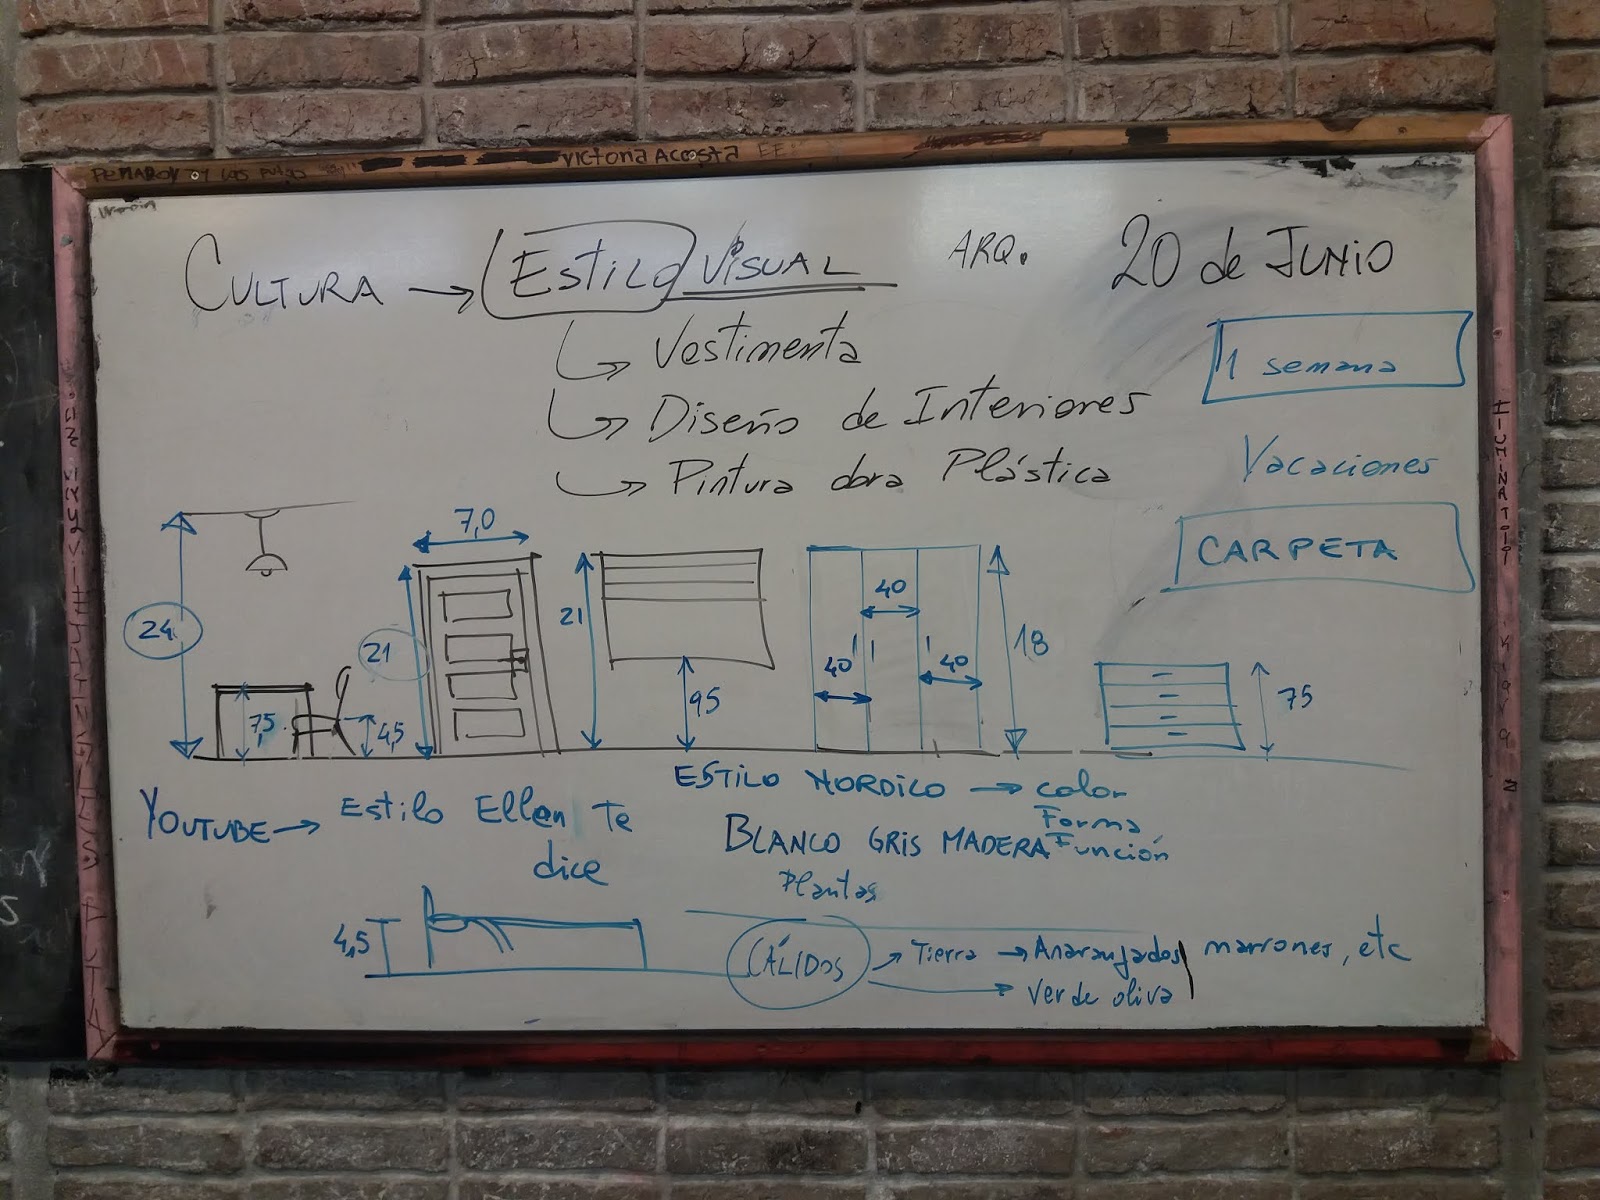 VICTORIA ACOSTA
CULTURA → Estilo VISUAL
ARQ.
20 de JUNIO
Vestimenta
Diseño de Interiores
Pintura obra Plástica
1 semana
Vacaciones
CARPETA
7,0
24
21
21
40
40
40
18
95
7,5
4,5
75
ESTILO NORDICO → color
Forma
Función
BLANCO GRIS MADERA
Plantas
YOUTUBE → Estilo Ellen Te
dice
4,5
CÁLIDOS → Tierra → Anaranjados marrones, etc
→ Verde oliva